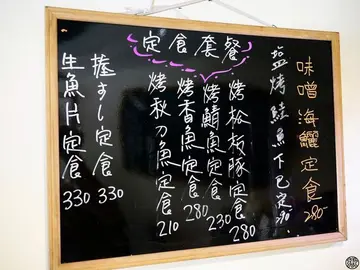 定食套餐
味噌海鱺定食 280-
塩烤鮭魚下巴定 290.
烤松板豚定食 280
烤鯖魚定食 230
烤香魚定食 280
烤秋刀魚定食 210
握すし定食 330
生魚片定食 330